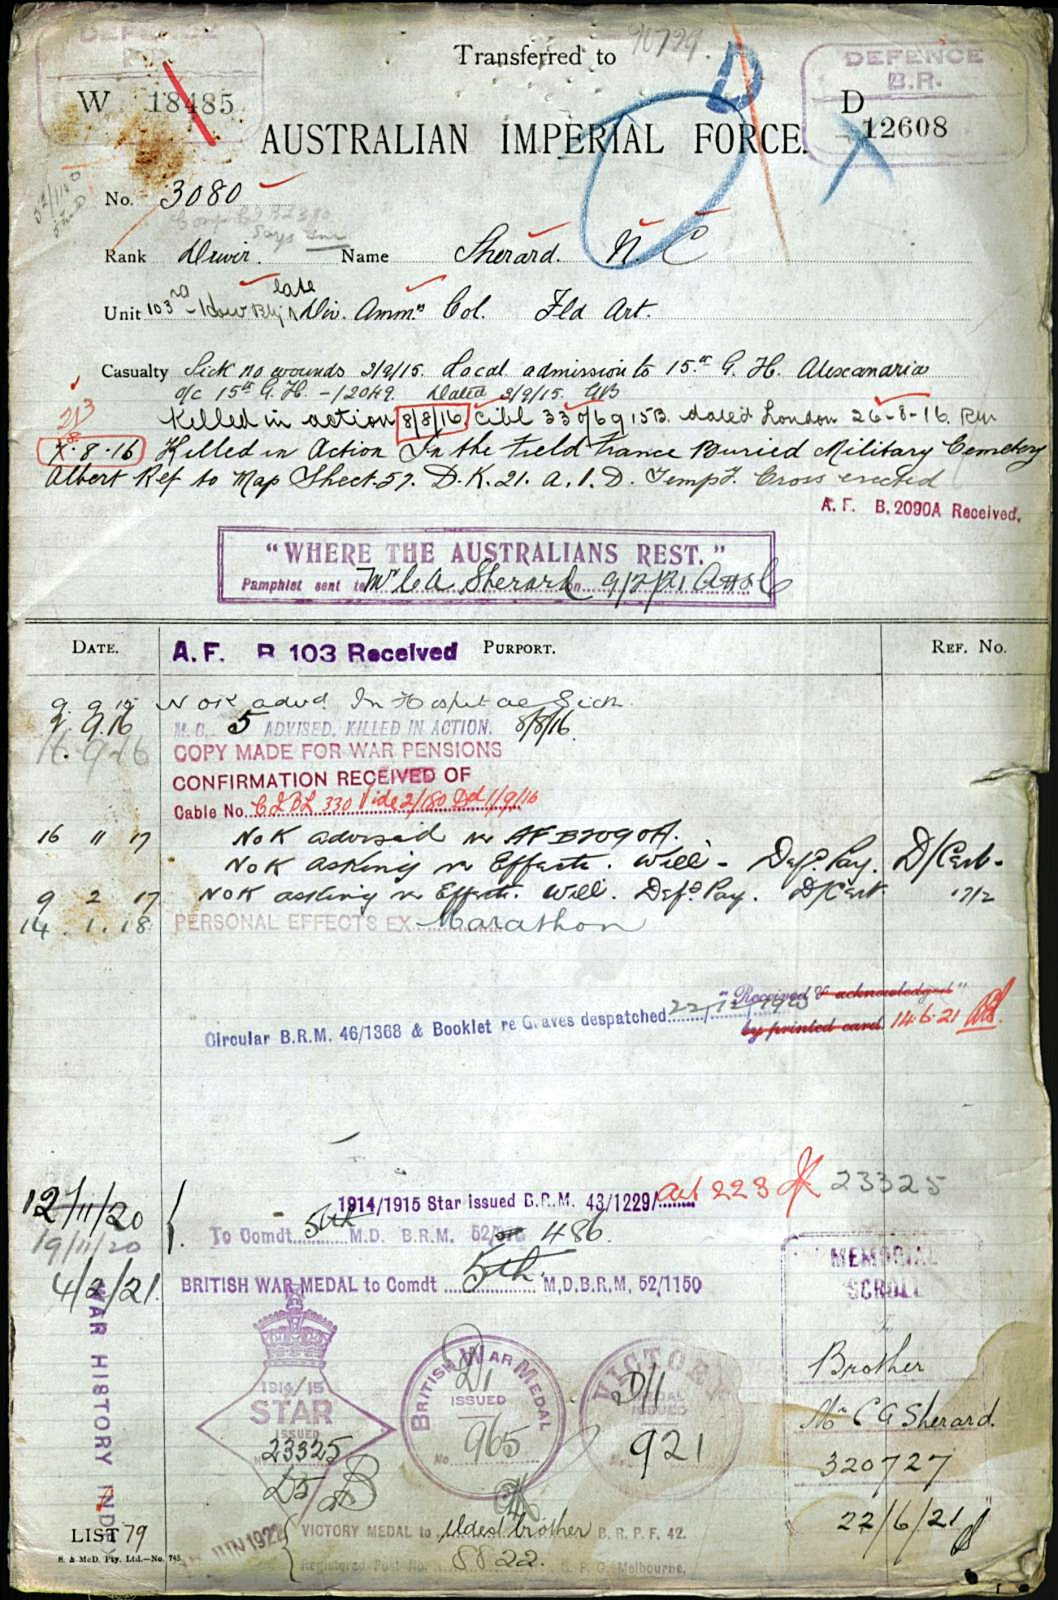 DEFENCE
Transferred to
90729
D
DEFENCE
B.R.
W 18485
D 12608
AUSTRALIAN IMPERIAL FORCE.
No. 3080
Says
Rank Driver. Name Sherard. N. C
late
Unit 103rd How Bty Div. Ammn Col. Fld Art.
Casualty Sick no wounds 2/9/15. Local admission to 15th G. H. Alexandria
o/c 15th G. H. - /2049. Dated 2/9/15.
Killed in action 8/8/16 Cibl 33 dated London 26-8-16.
8-16 Killed in Action In the Field France Buried Military Cemetery
Albert Ref to Map Sheet 57. D. K. 21. a. 1. D. Tempy. Cross erected
A. F. B. 2090A Received.
"WHERE THE AUSTRALIANS REST."
Pamphlet sent to Mr C A Sherard on 9/2/21
DATE. A. F. B 103 Received PURPORT. REF. No.
9. 9. 15 NOK advd In Hospital Sick
9. 16 M.C. 5 ADVISED, KILLED IN ACTION. 8/8/16.
16.9.16 COPY MADE FOR WAR PENSIONS
CONFIRMATION RECEIVED OF
Cable No. CLBL 330 Vide 2/180 Dd 1/9/16
16 11 17 NoK advised re AF B2090A.
NoK asking re Effects. Will - Defd Pay. D/Cert.
9 2 17 NOK asking re Effects. Will. Defd Pay. D/Cert 17/2
14. 1. 18 PERSONAL EFFECTS EX Marathon
"Received & acknowledged"
Circular B.R.M. 46/1368 & Booklet re Graves despatched 22/12/1920
by printed card. 14.6.21
12/11/20 1914/1915 Star issued B.R.M. 43/1229/ 223 23325
19/11/20 To Comdt. 5th M.D. B.R.M. 52/ 486.
4/2/21. BRITISH WAR MEDAL to Comdt 5th. M.D.B.R.M. 52/1150
MEMORIAL
SCROLL
To
Brother
Mr C A Sherard.
320727
22/6/21
WAR HISTORY INDEX
1914/15
STAR
ISSUED
No 23325
BRITISH WAR MEDAL
D/1
ISSUED
No 965
VICTORY
D/1
MEDAL
ISSUED
921
LIST 79
JUN 1922
VICTORY MEDAL to eldest brother B. R. P. F. 42.
Registered Post No. 8822. G. P. O. Melbourne.
S. & McD. Pty. Ltd.—No. 745.